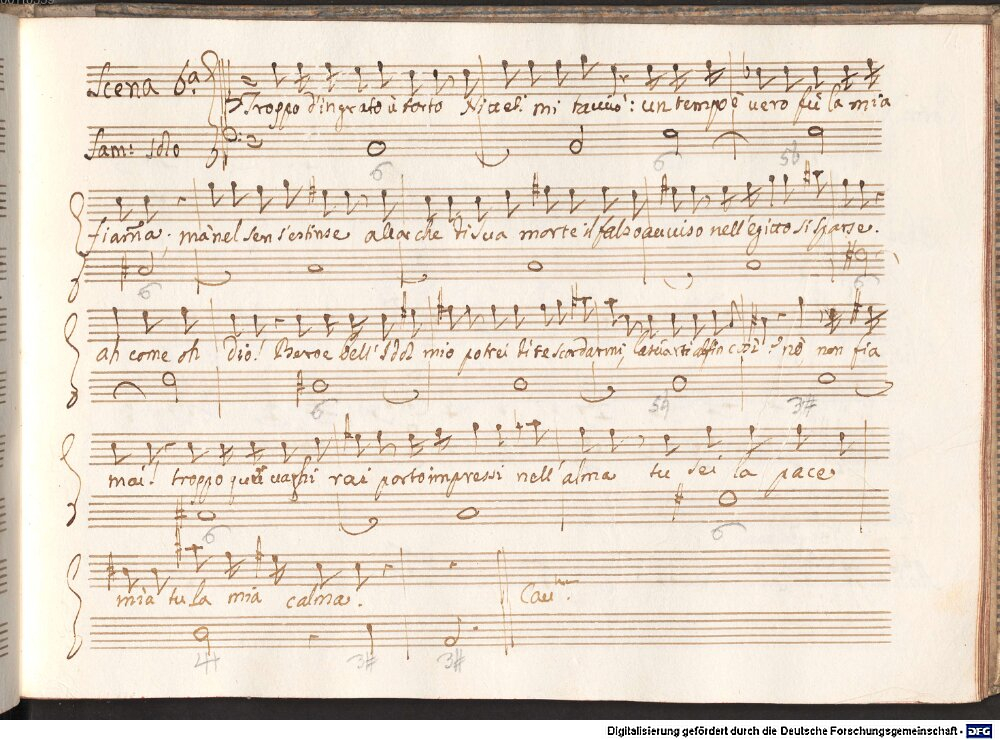 Scena 6a
Troppo d'ingrato à torto mi un tempo è vero fù la mia
Sam: solo
6 6 5b
fiam̃a. mà nel sen s'estinse allor che di sua morte il falso auuiso nell'egitto si sparse.
6 6
ah come oh Dio! Beroe dell'Idol mio potrei di te scordarmi, lasciarti alfin così? nò, non fia
6 5♮ 3#
mai! troppo quei uaghi rai porto impressi nell'alma tu sei la pace
6 6
mia tu la mia calma. Cau:
4+ 3# 3#
Digitalisierung gefördert durch die Deutsche Forschungsgemeinschaft - DFG